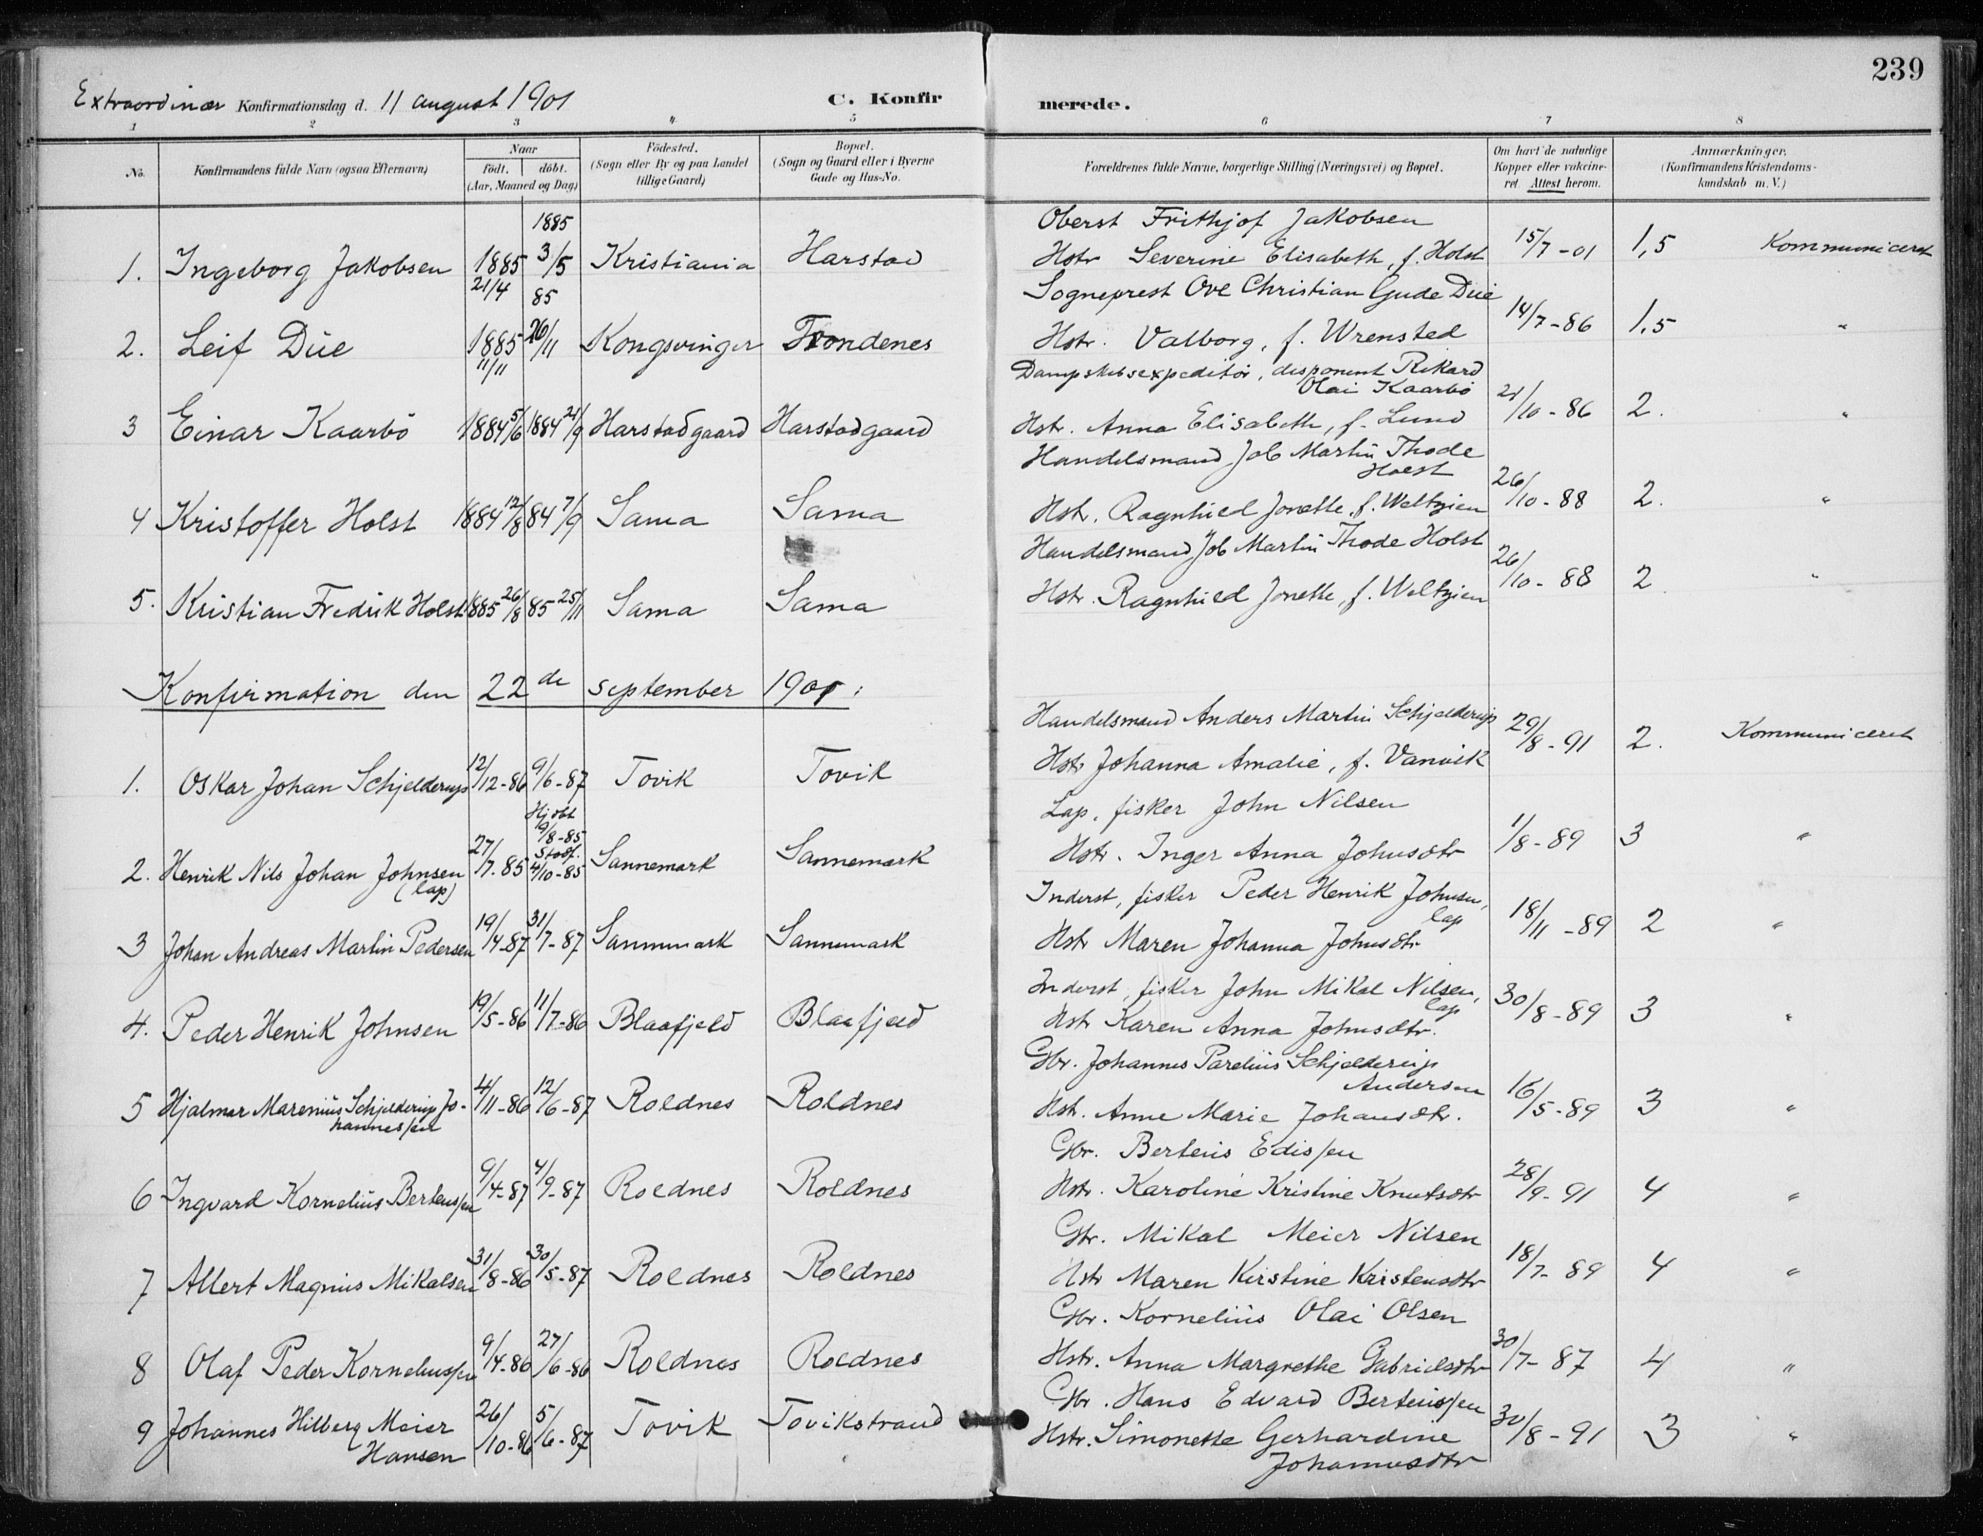 239
Extraordinær Konfirmationsdag d. 11 august 1901 C. Konfir merede.
1 2 3 4 5 6 7 8
No. Konfirmandens fulde Navn (ogsaa Efternavn) Naar födt. döbt. (Aar, Maaned og Dag) Födested. (Sogn eller By og paa Landet tillige Gaard) Bopæl. (Sogn og Gaard eller i Byerne Gade og Hus-No. Forældrenes fulde Navne, borgerlige Stilling (Næringsvei) og Bopæl. Om havt de naturlige Kopper eller vakcineret. Attest herom. Anmærkninger. (Konfirmandens Kristendomskundskab m. V.)
1885 Oberst Frithjof Jakobsen
1. Ingeborg Jakobsen 1885 21/4 3/5 Kristiania Harstad Hstr Severine Elisabeth, f. Holst 15/7-01 1,5 Kommuniceret
85 Sogneprest Ove Christian Gude Düe
2. Leif Düe 1885 11/11 26/11 Kongsvinger Trondenes Hstr. Valborg, f. Wrensted 14/7-86 1,5 "
Dampskibsexpeditör, disponent Rikard
Olai Kaarbö
3 Einar Kaarbö 1884 5/6 1884 21/9 Harstadgaard Harstadgaard Hstr. Anna Elisabeth, f. Lund 21/10-86 2. "
Handelsmand Job Martin Thode
Holst
4 Kristoffer Holst 1884 12/8 84 7/9 Sama Sama Hstr. Ragnhild Jonette, f. Weltzien 26/10-88 2. "
Handelsmand Job Martin Thode Holst
5. Kristian Fredrik Holst 1885 26/8 85 25/11 Sama Sama Hstr. Ragnhild Jonette, f. Weltzien 26/10-88 2 "
Konfirmation den 22de september 1901:
Handelsmand Anders Martin Schjelderup
1. Oskar Johan Schjelderup 12/12-86 9/6-87 Tovik Tovik Hstr Johanna Amalie, f. Vanvik 29/8-91 2. Kommuniceret
Hjdbt 9/8-85 Stadf. Lap, fisker John Nilsen
2. Henrik Nils Johan Johnsen 27/7-85 4/10-85 Sannemark Sannemark Hstr. Inger Anna Johnsdtr 1/8-89 3 "
(lap) Inderst, fisker Peder Henrik Johnsen,
lap
3 Johan Andreas Martin Pedersen 19/4-87 31/7-87 Sannemark Sannemark Hstr Maren Johanna Johnsdtr 18/11-89 2 "
Inderst, fisker John Mikal Nilsen,
lap
4. Peder Henrik Johnsen 19/5-86 11/7-86 Blaafjeld Blaafjeld Hstr Karen Anna Johnsdtr. 30/8-89 3 "
Gbr. Johannes Parelius Schjelderup
Andersen
5 Hjalmar Marenius Schjelderup Jo- 4/11-86 12/6-87 Roldnes Roldnes Hstr. Anne Marie Johansdtr. 16/5-89 3 "
hannessen
Gbr. Berteus Edissen
6 Ingvard Kornelius Berteussen 9/4-87 4/9-87 Roldnes Roldnes Hstr. Karoline Kristine Knutsdtr 28/9-91 4 "
Gbr. Mikal Meier Nilsen
7 Albert Magnus Mikalsen 31/8-86 30/5-87 Roldnes Roldnes Hstr Maren Kirstine Kristensdtr 18/7-89 4 "
Gbr. Kornelius Olai Olsen
8 Olaf Peder Korneliussen 9/4-86 27/6-86 Roldnes Roldnes Hstr. Anna Margrethe Gabrielsdtr 30/7-87 4 "
Gbr. Hans Edvard Berteussen
9 Johannes Hilberg Meier 26/10-86 5/6-87 Tovik Tovikstrand Hstr. Simonette Gerhardine 30/8-91 3 "
Hansen Johannesdtr